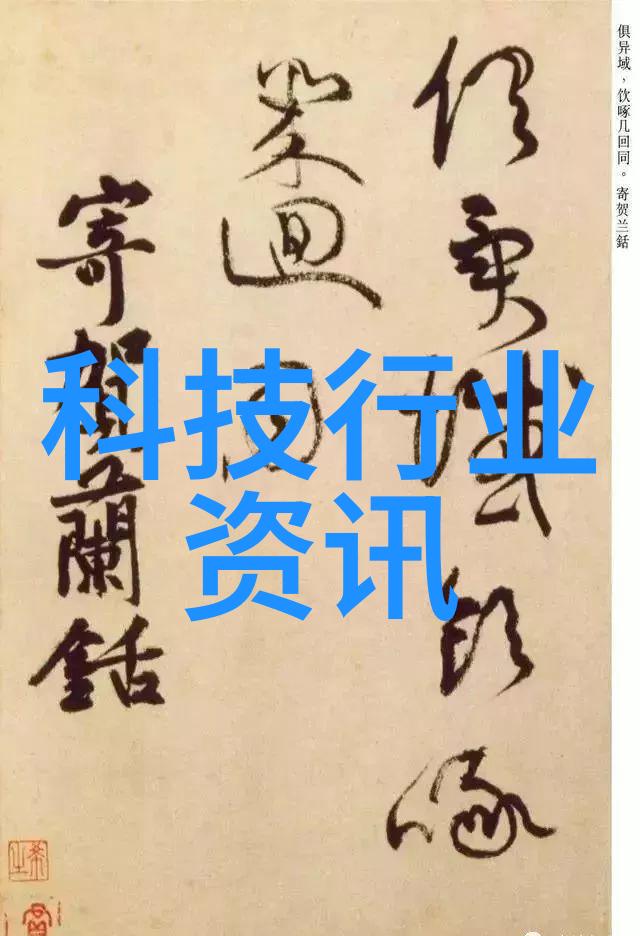 俱异域，饮啄几回同。寄贺兰銛
俱異域飲啄
幾迴同
寄賀蘭銛
科技行业
资讯